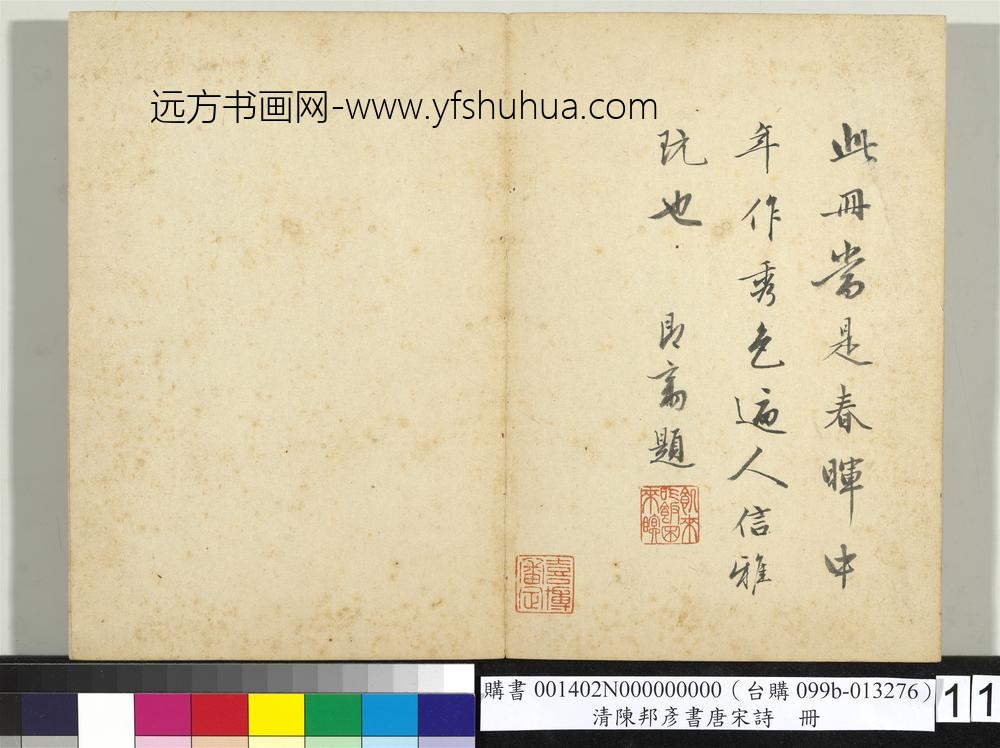 远方书画网-www.yfshuhua.com
此冊當是春暉中
年作秀色逼人信雅
玩也
即高題
飢來
喫飯困
來眠
購書 001402N000000000（台購 099b-013276）
清陳邦彥書唐宋詩　冊
11